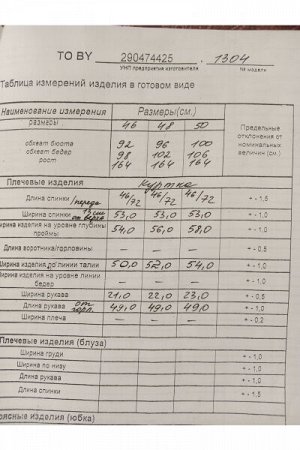 ТО BY 290474425 . 1304
УНП предприятия изготовителя № модели
Таблица измерений изделия в готовом виде
Наименование измерения Размеры(см.) Предельные отклонения от номинальных величин (см.)
размеры 46 48 50
обхват бюста 92 96 100
обхват бедер 98 102 106
рост 164 164 164
Плечевые изделия Куртка
Длина спинки /переда 46/72 46/72 46/72 + - 1,5
Ширина спинки 53,0 53,0 53,0 + - 1,0
Ширина изделия на уровне глубины проймы 54,0 56,0 58,0 + - 1,0
Длина воротника/горловины — — — + - 0,5
Ширина изделия до линии талии 50,0 52,0 54,0 + - 1,0
Ширина изделия на уровне линии бедер — — — + - 1,0
Ширина рукава 21,0 22,0 23,0 + - 0,5
Длина рукава от горл. 49,0 49,0 49,0 + - 1,0
Ширина плеча — — — + - 0,2
Плечевые изделия (блуза)
Ширина груди + - 1,0
Ширина по низу + - 1,0
Длина рукава + - 1,0
Длина спинки + - 1,5
ясные изделия (юбка)